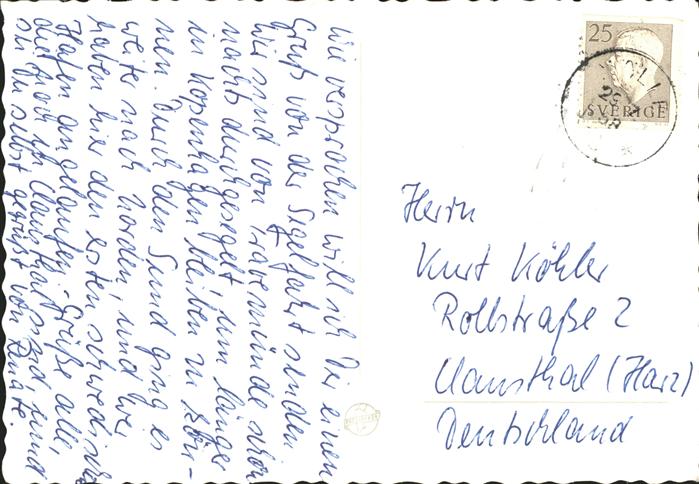 Wie versprochen will ich Dir einen
Gruß von der Segelfahrt senden
Wir sind von Travemünde
nachts durchgesegelt, um länger
in Kopenhagen bleiben zu kön-
nen. Durch den Sund ging es
weiter nach Norden, und wir
haben hier den ersten schwedischen
Hafen angelaufen. Grüße alle,
die noch in Clausthal sind und
sei Du selbst gegrüßt von
25
SVERIGE
Herrn
Kurt Köhler
Rollstraße 2
Clausthal (Harz)
Deutschland